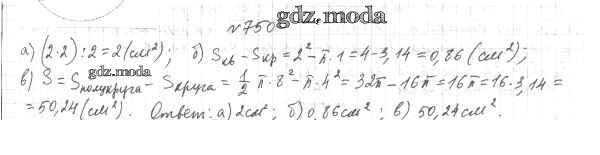 №750
gdz.moda
а) (2·2):2=2(см²); б) Sкв - Sкр = 2² - π·1 = 4 - 3,14 = 0,86 (см²);
gdz.moda
в) S = Sполукруга - Sкруга = 1/2 π·8² - π·4² = 32π - 16π = 16π = 16·3,14 =
= 50,24 (см²). Ответ: а) 2см²; б) 0,86см²; в) 50,24см².